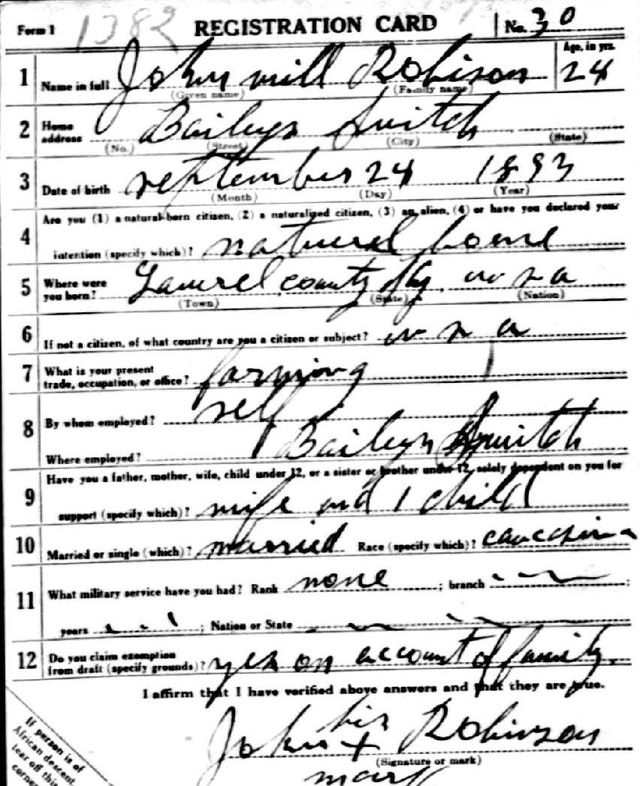 Form 1 1382 REGISTRATION CARD No. 30
1 Name in full John mill Robison Age, in yrs. 24
(Given name) (Family name)
2 Home address Baileys Switch
(No.) (Street) (City) (State)
3 Date of birth September 24 1893
(Month) (Day) (Year)
Are you (1) a natural-born citizen, (2) a naturalized citizen, (3) an alien, (4) or have you declared your
4 intention (specify which)? natural borne
5 Where were you born? Laurel county Ky u s a
(Town) (State) (Nation)
6 If not a citizen, of what country are you a citizen or subject? u s a
7 What is your present trade, occupation, or office? farming
8 By whom employed? self
Where employed? Baileys Switch
Have you a father, mother, wife, child under 12, or a sister or brother under 12, solely dependent on you for
9 support (specify which)? wife and 1 child
10 Married or single (which)? married Race (specify which)? caucasian
11 What military service have you had? Rank none ; branch
years ; Nation or State
12 Do you claim exemption from draft (specify grounds)? yes on account of family.
I affirm that I have verified above answers and that they are true.
his
John + Robinson
(Signature or mark)
mark
If person is of
African descent,
tear off this
corner